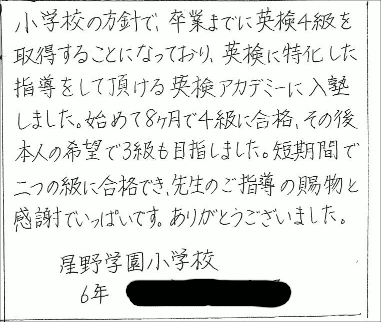 小学校の方針で、卒業までに英検4級を
取得することになっており、英検に特化した
指導をして頂ける英検アカデミーに入塾
しました。始めて8ヶ月で4級に合格、その後
本人の希望で3級も目指しました。短期間で
二つの級に合格でき、先生のご指導の賜物と
感謝でいっぱいです。ありがとうございました。
星野学園小学校
6年